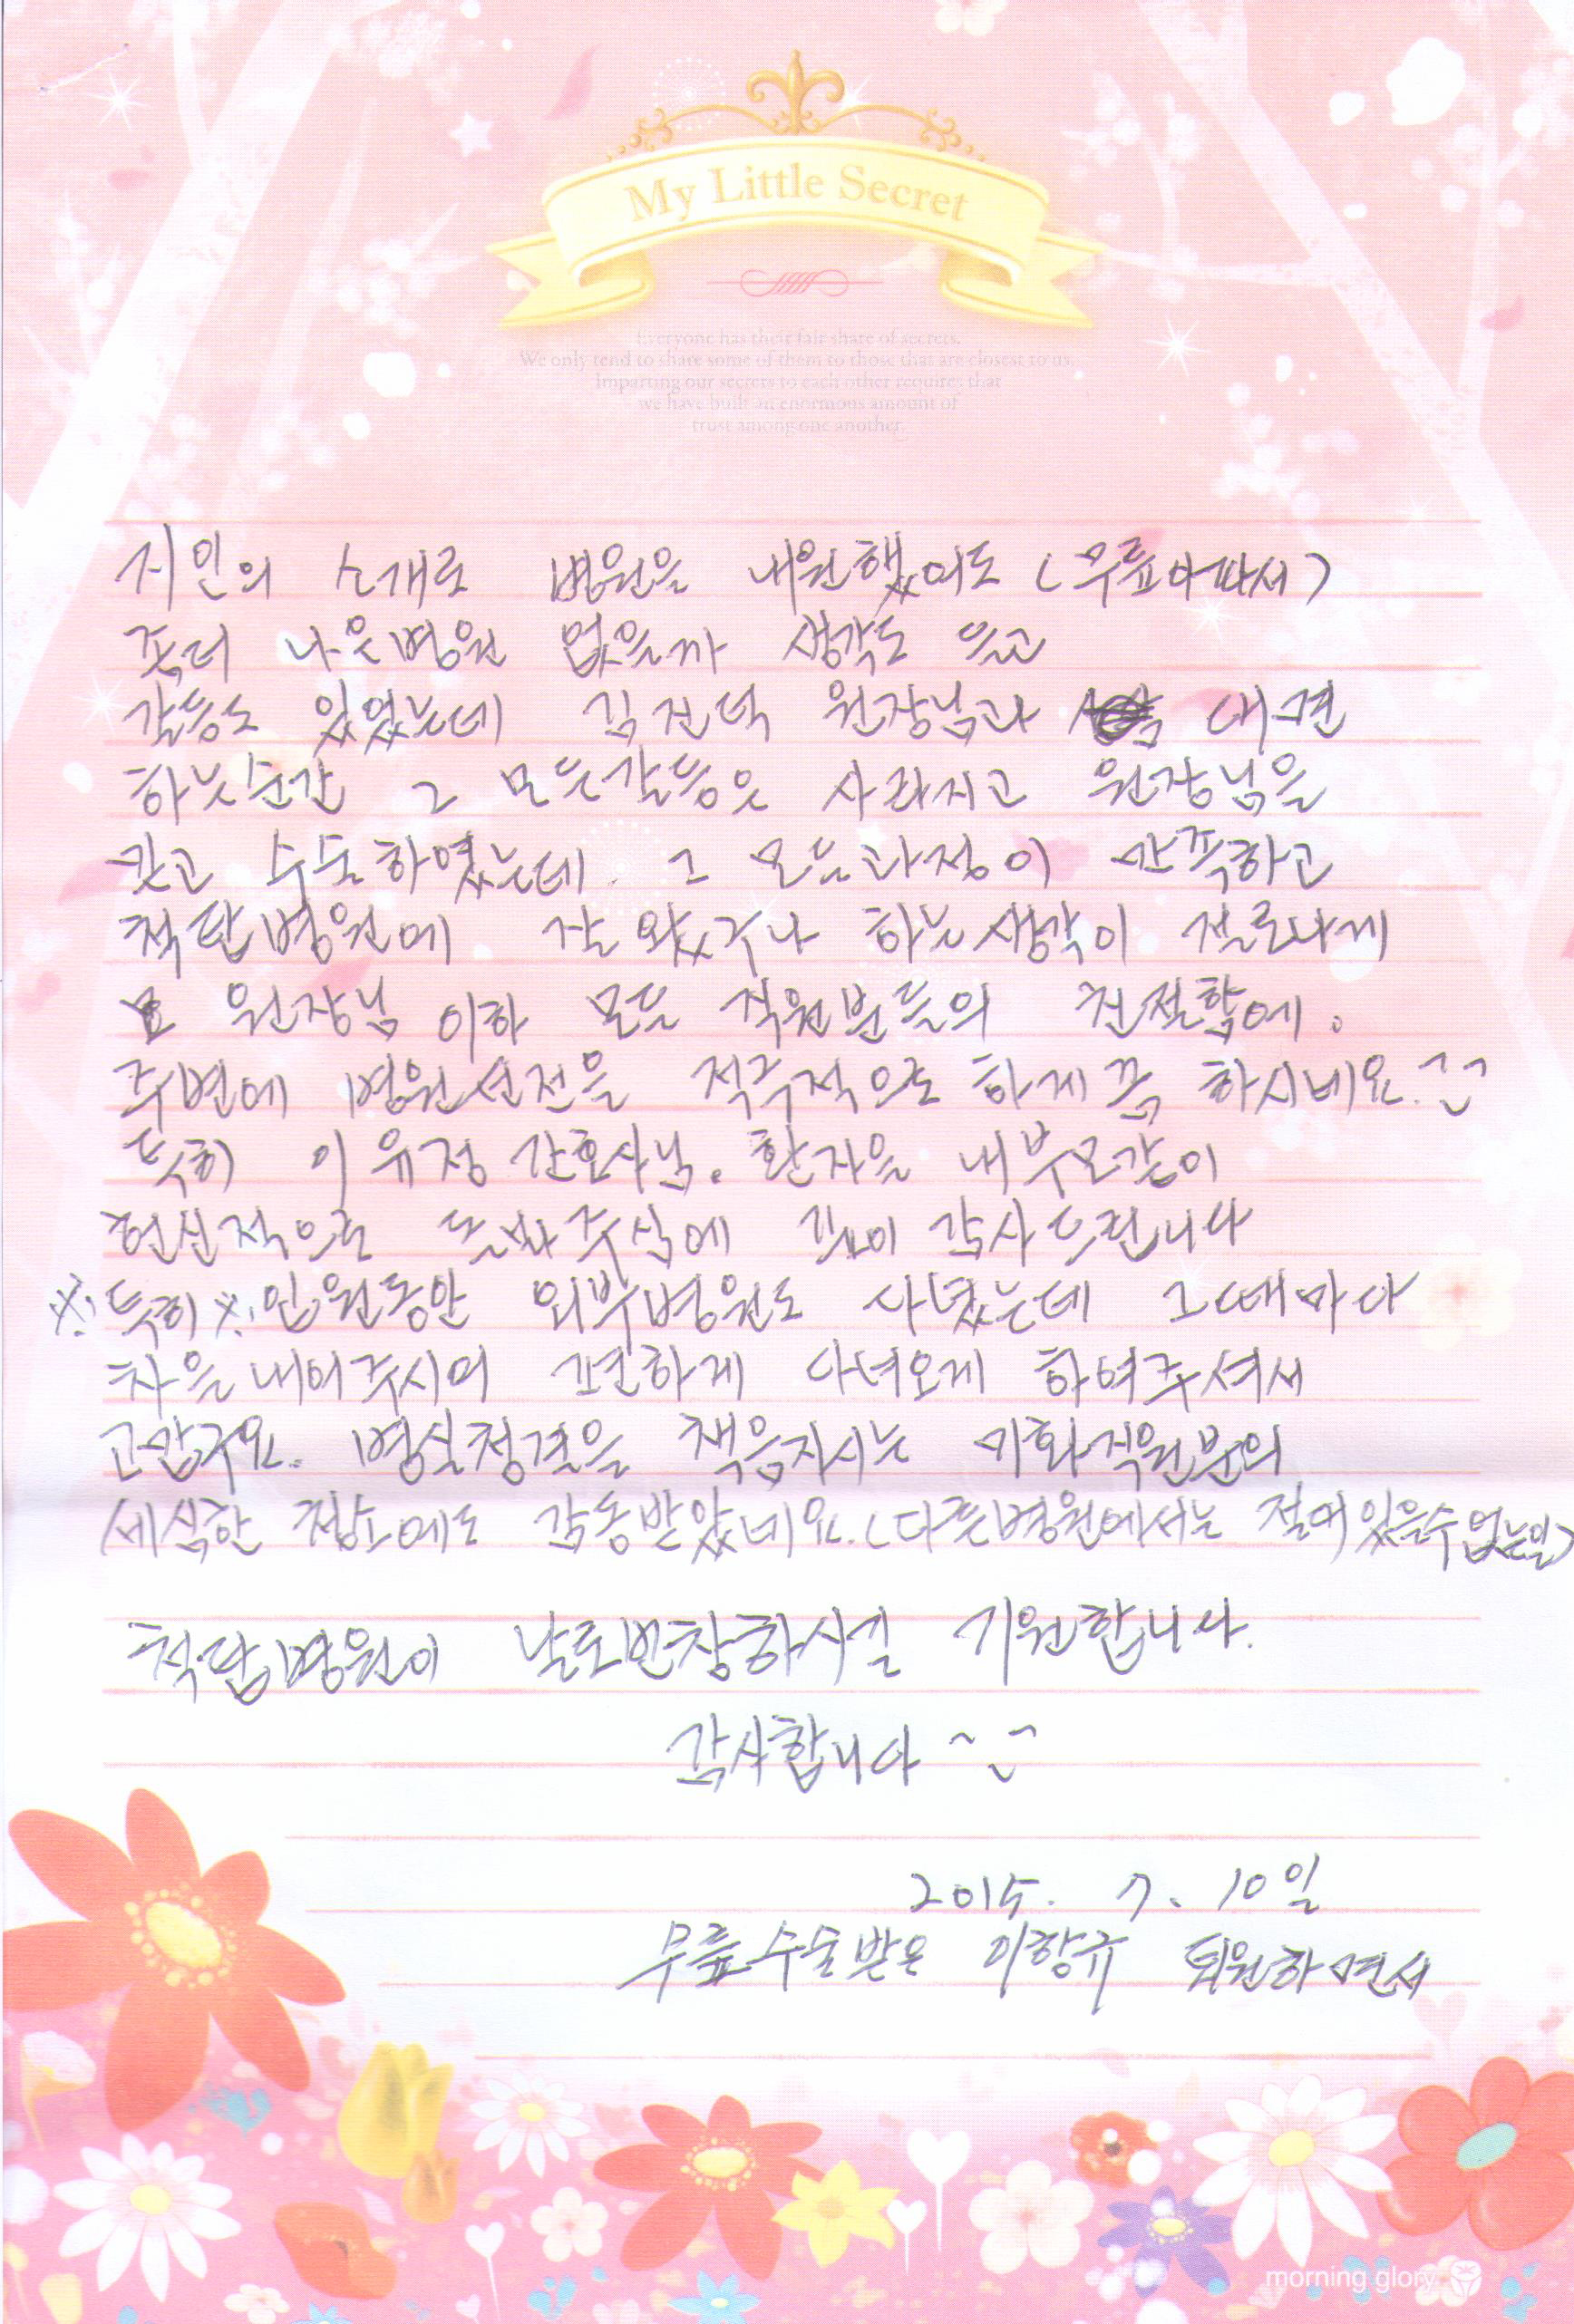 My Little Secret
Everyone has their fair share of secrets.
We only tend to share some of them to those that are closest to us.
Imparting our secrets to each other requires that
we have built an enormous amount of
trust among one another.
지인의 소개로 병원을 내원했어도 (무릎아파서)
좀더 나은병원 없을까 생각도 들고
갈등도 있었는데 김진덕 원장님과 대면
하는순간 그 모든갈등은 사라지고 원장님을
믿고 수술하였는데 그 모든과정이 만족하고
척탑병원에 잘 왔구나 하는생각이 절로나게
원장님 이하 모든 직원분들의 친절함에.
주변에 병원선전을 적극적으로 하게끔 하시네요.
특히 이유정 간호사님. 환자을 내부모같이
헌신적으로 돌봐주심에 깊이 감사드립니다
※특히※ 입원동안 외부병원도 다녔는데 그때마다
차을내어주시어 편하게 다녀오게 하여주셔서
고맙구요. 병실청결을 책음지시는 미화직원분의
세심한 청소에도 감동받았네요.(다른병원에서는 절대있을수없는일)
척탑병원이 날로번창하시길 기원합니다.
감사합니다
2015. 7. 10일
무릎수술받은 이항규 퇴원하면서
morning glory